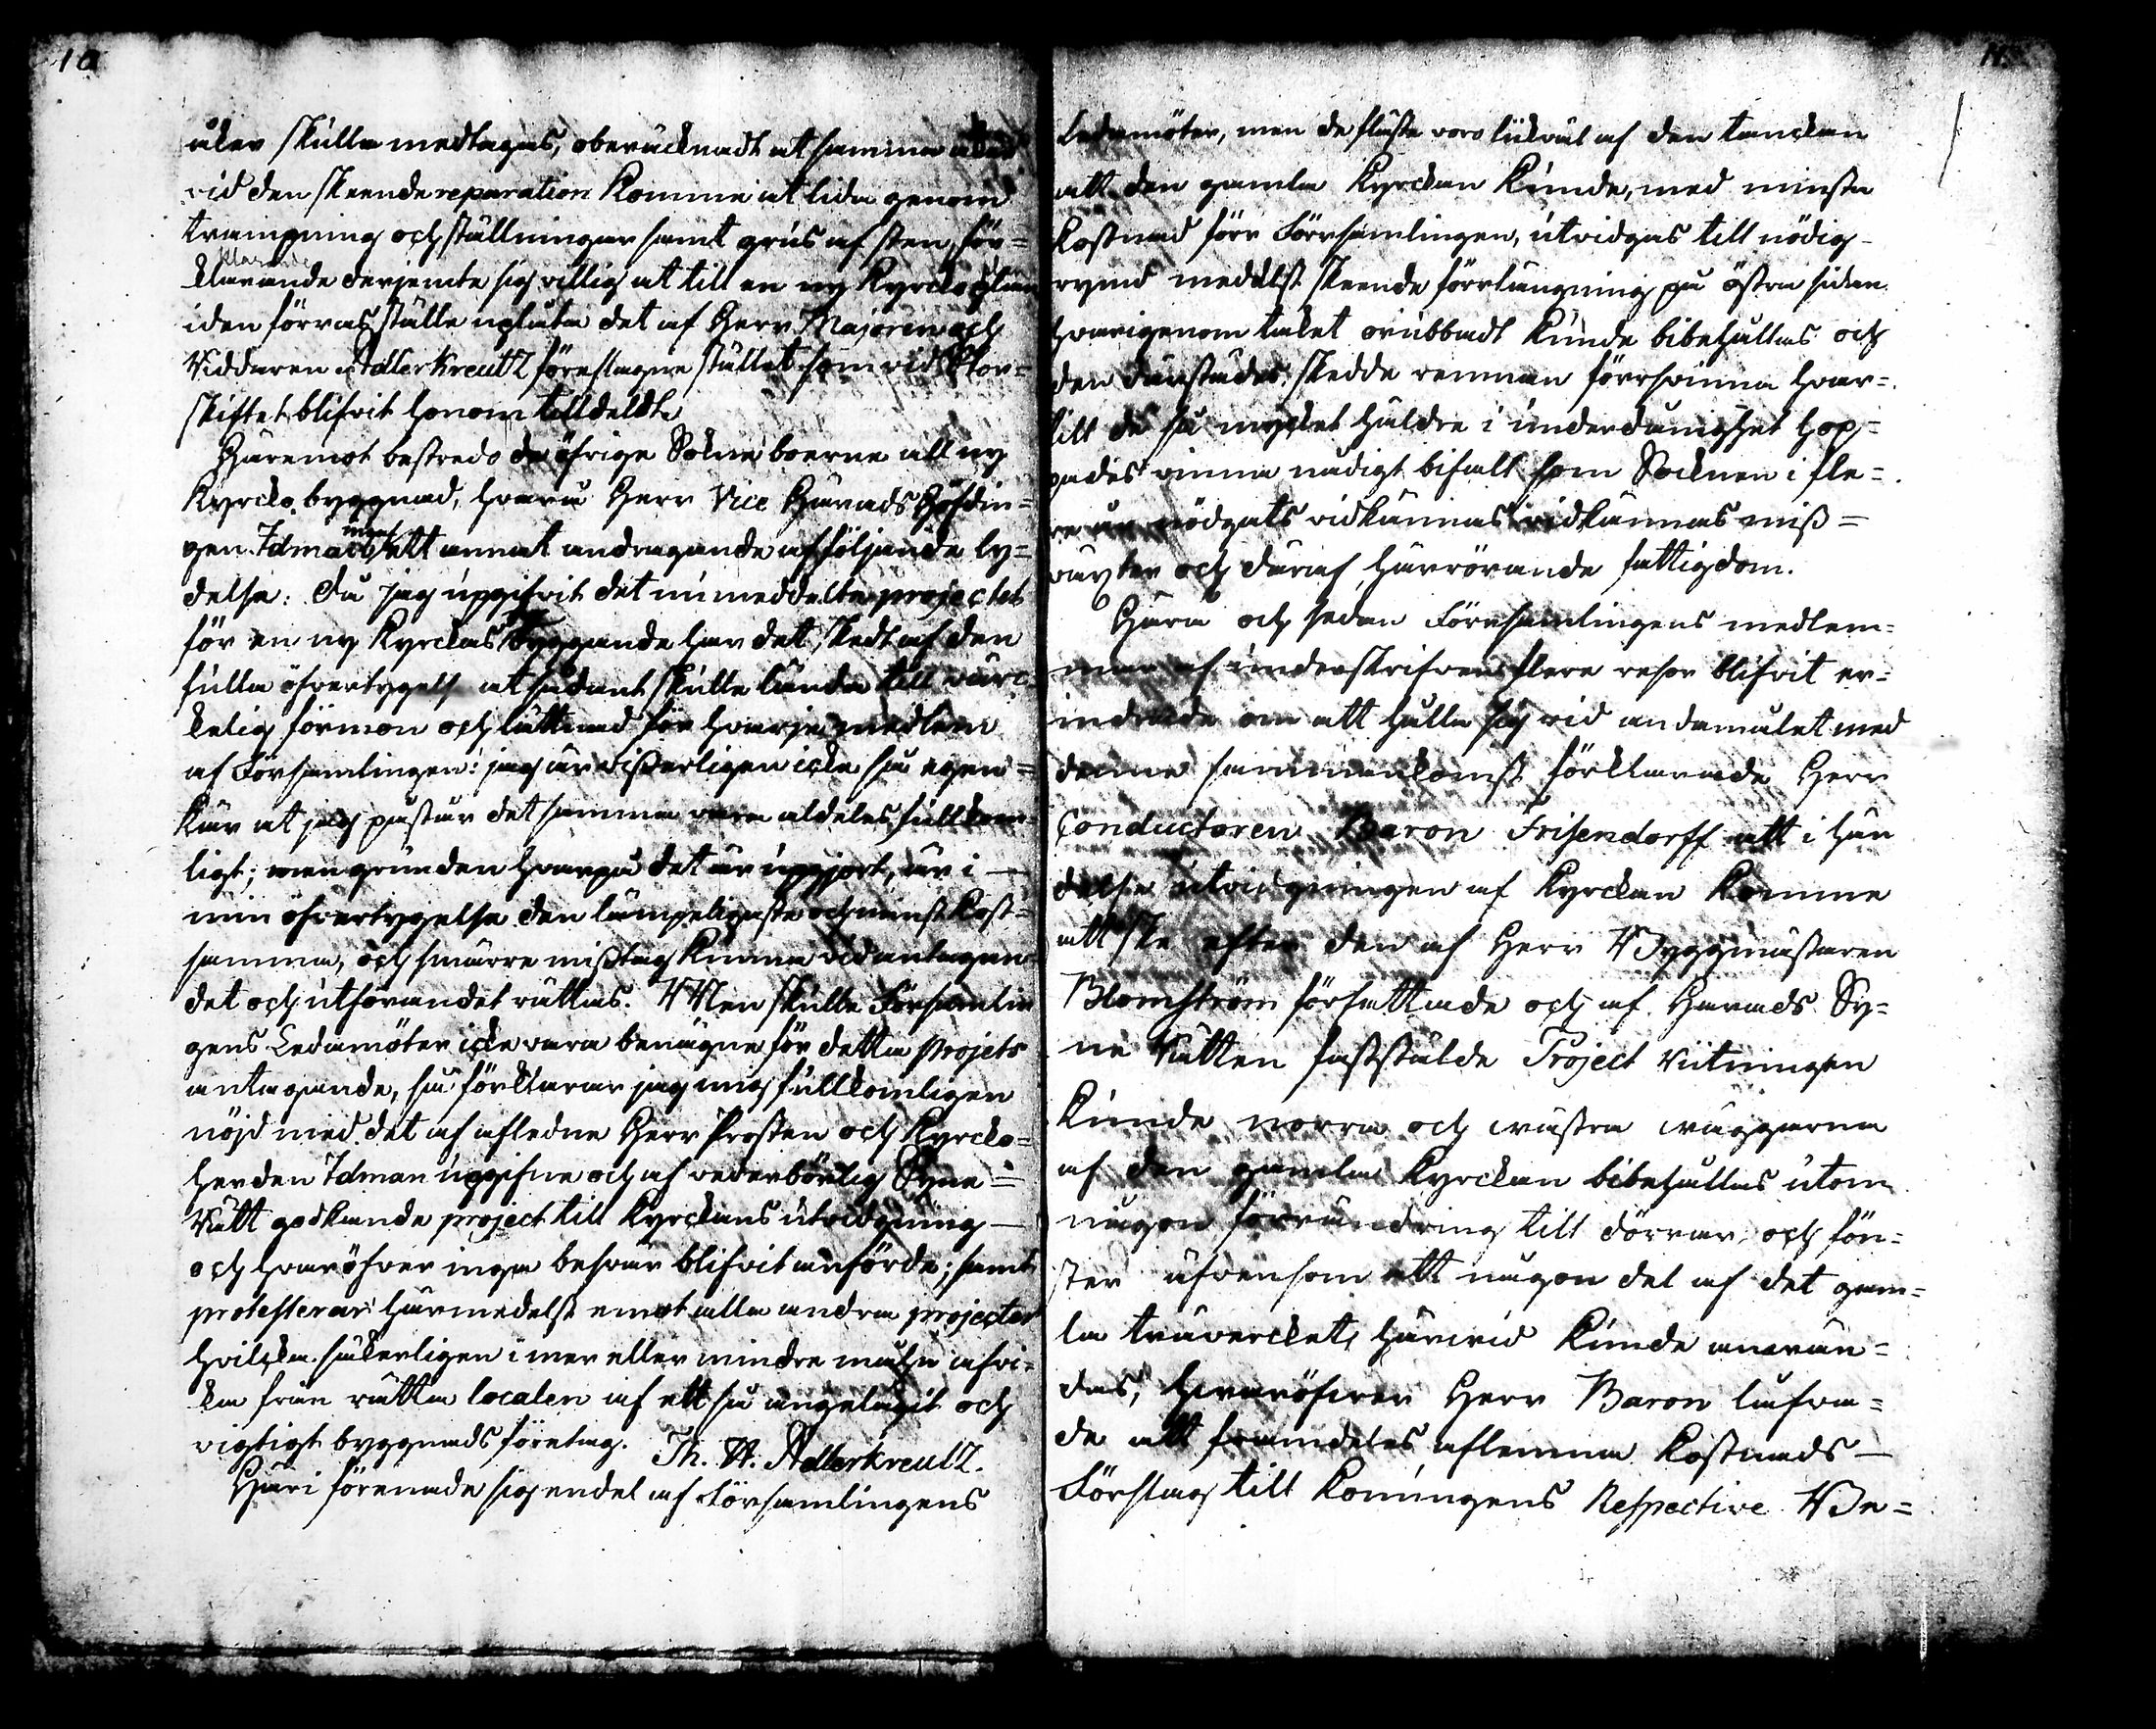 10
åker skulle medtagas, oberäcknadt at samma åker
vid den skeende reparation komme at lida genom
trampning och ställningar samt grus af sten, för=
klarande
klarande derjemte sig villig at till en ny Kyrcko plan
i den förras ställe uplåta det af Herr Majoren och
Riddaren Adlerkreutz föreslagne stället som vid stor=
skiftet blifvit honom tilldeldt.
Häremot bestredo de öfrige Sokne boerne all ny
Kyrcko byggnad, hvarå Herr Vice Härads Höfdin=
gen Idman mot ett annat andragande af följande ly=
delse: Då jag upgifvit det nu meddelta projectet
för en ny Kyrckas byggande har det skedt af den
fulla öfvertygelse at sådant skulle lända till värc=
kelig förmon och lättnad för hvarje medlem
af Församlingen: jag är visserligen icke så egen=
kär at jag påstår det samma vara aldeles fullkom
ligt; men grunden hvarpå det är upgjort, är i —
min öfvertygelse den lämpeligaste och minst kost=
samma, och smärre misstag kunna vid antagan
det och utförandet rättas. Men skulle Församlin
gens Ledamöter icke vara benägne för detta Projets
antagande, så förklarar jag mig fullkomligen
nöjd med det af afledne Herr Prosten och Kyrcko=
herden Idman upgifne och af vederbörlig Syne=
Rätt godkände project till Kyrckans utvidgning —
och hvaröfver inga besvär blifvit anförde; samt
protesterar härmedelst emot alla andra projecter
hvilcka säkerligen i mer eller mindre måhn afvi=
ka från rätta localen af ett så angelägit och
vigtigt byggnads företag. Th. A. Adlerkreutz.
Häri förenade sig endel af Församlingens
11.
Ledamöter, men de fläste voro likväl af den tanckan
att den gamla Kyrckan kunde, med minsta
kostnad förr Församlingen, utvidgas till nödig
rymd meddelst skeende förrlängning på östra sidan
hvarigenom taket orubbadt kunde bibehållas och
den därstädes skedde remnan förrsvinna hvar=
till de så mycket häldre i underdånighet hop=
pades vinna nådigt bifall som Socknen i fle=
re år nödgats vidkännas vidkännas miss=
växter och däraf härrörande fattigdom.
Härå och sedan Församlingens medlem=
mar af underskrifven flere resor blifvit er=
indrade om att hålla sig vid andamålet med
denne sammankomst förklarade Herr
Conductoren Baron Friesendorff att i hän
delse utvidgningen af Kyrckan komme
att ske efter den af Herr Byggmästaren
Blomström författade och af Härads Sy=
ne Rätten fastställde Project Ritningen
kunde norra och västra väggarna
af den gamla Kyrckan bibehållas utom
någon förrändring till dörrar och fön=
ster äfvensom ett någon del af det gam=
la trävercket, härvid kunde använ=
das, hvaröfver Herr Baron lofva=
de att framdeles aflemna kostnads —
Förslag till Konungens Respective Be=